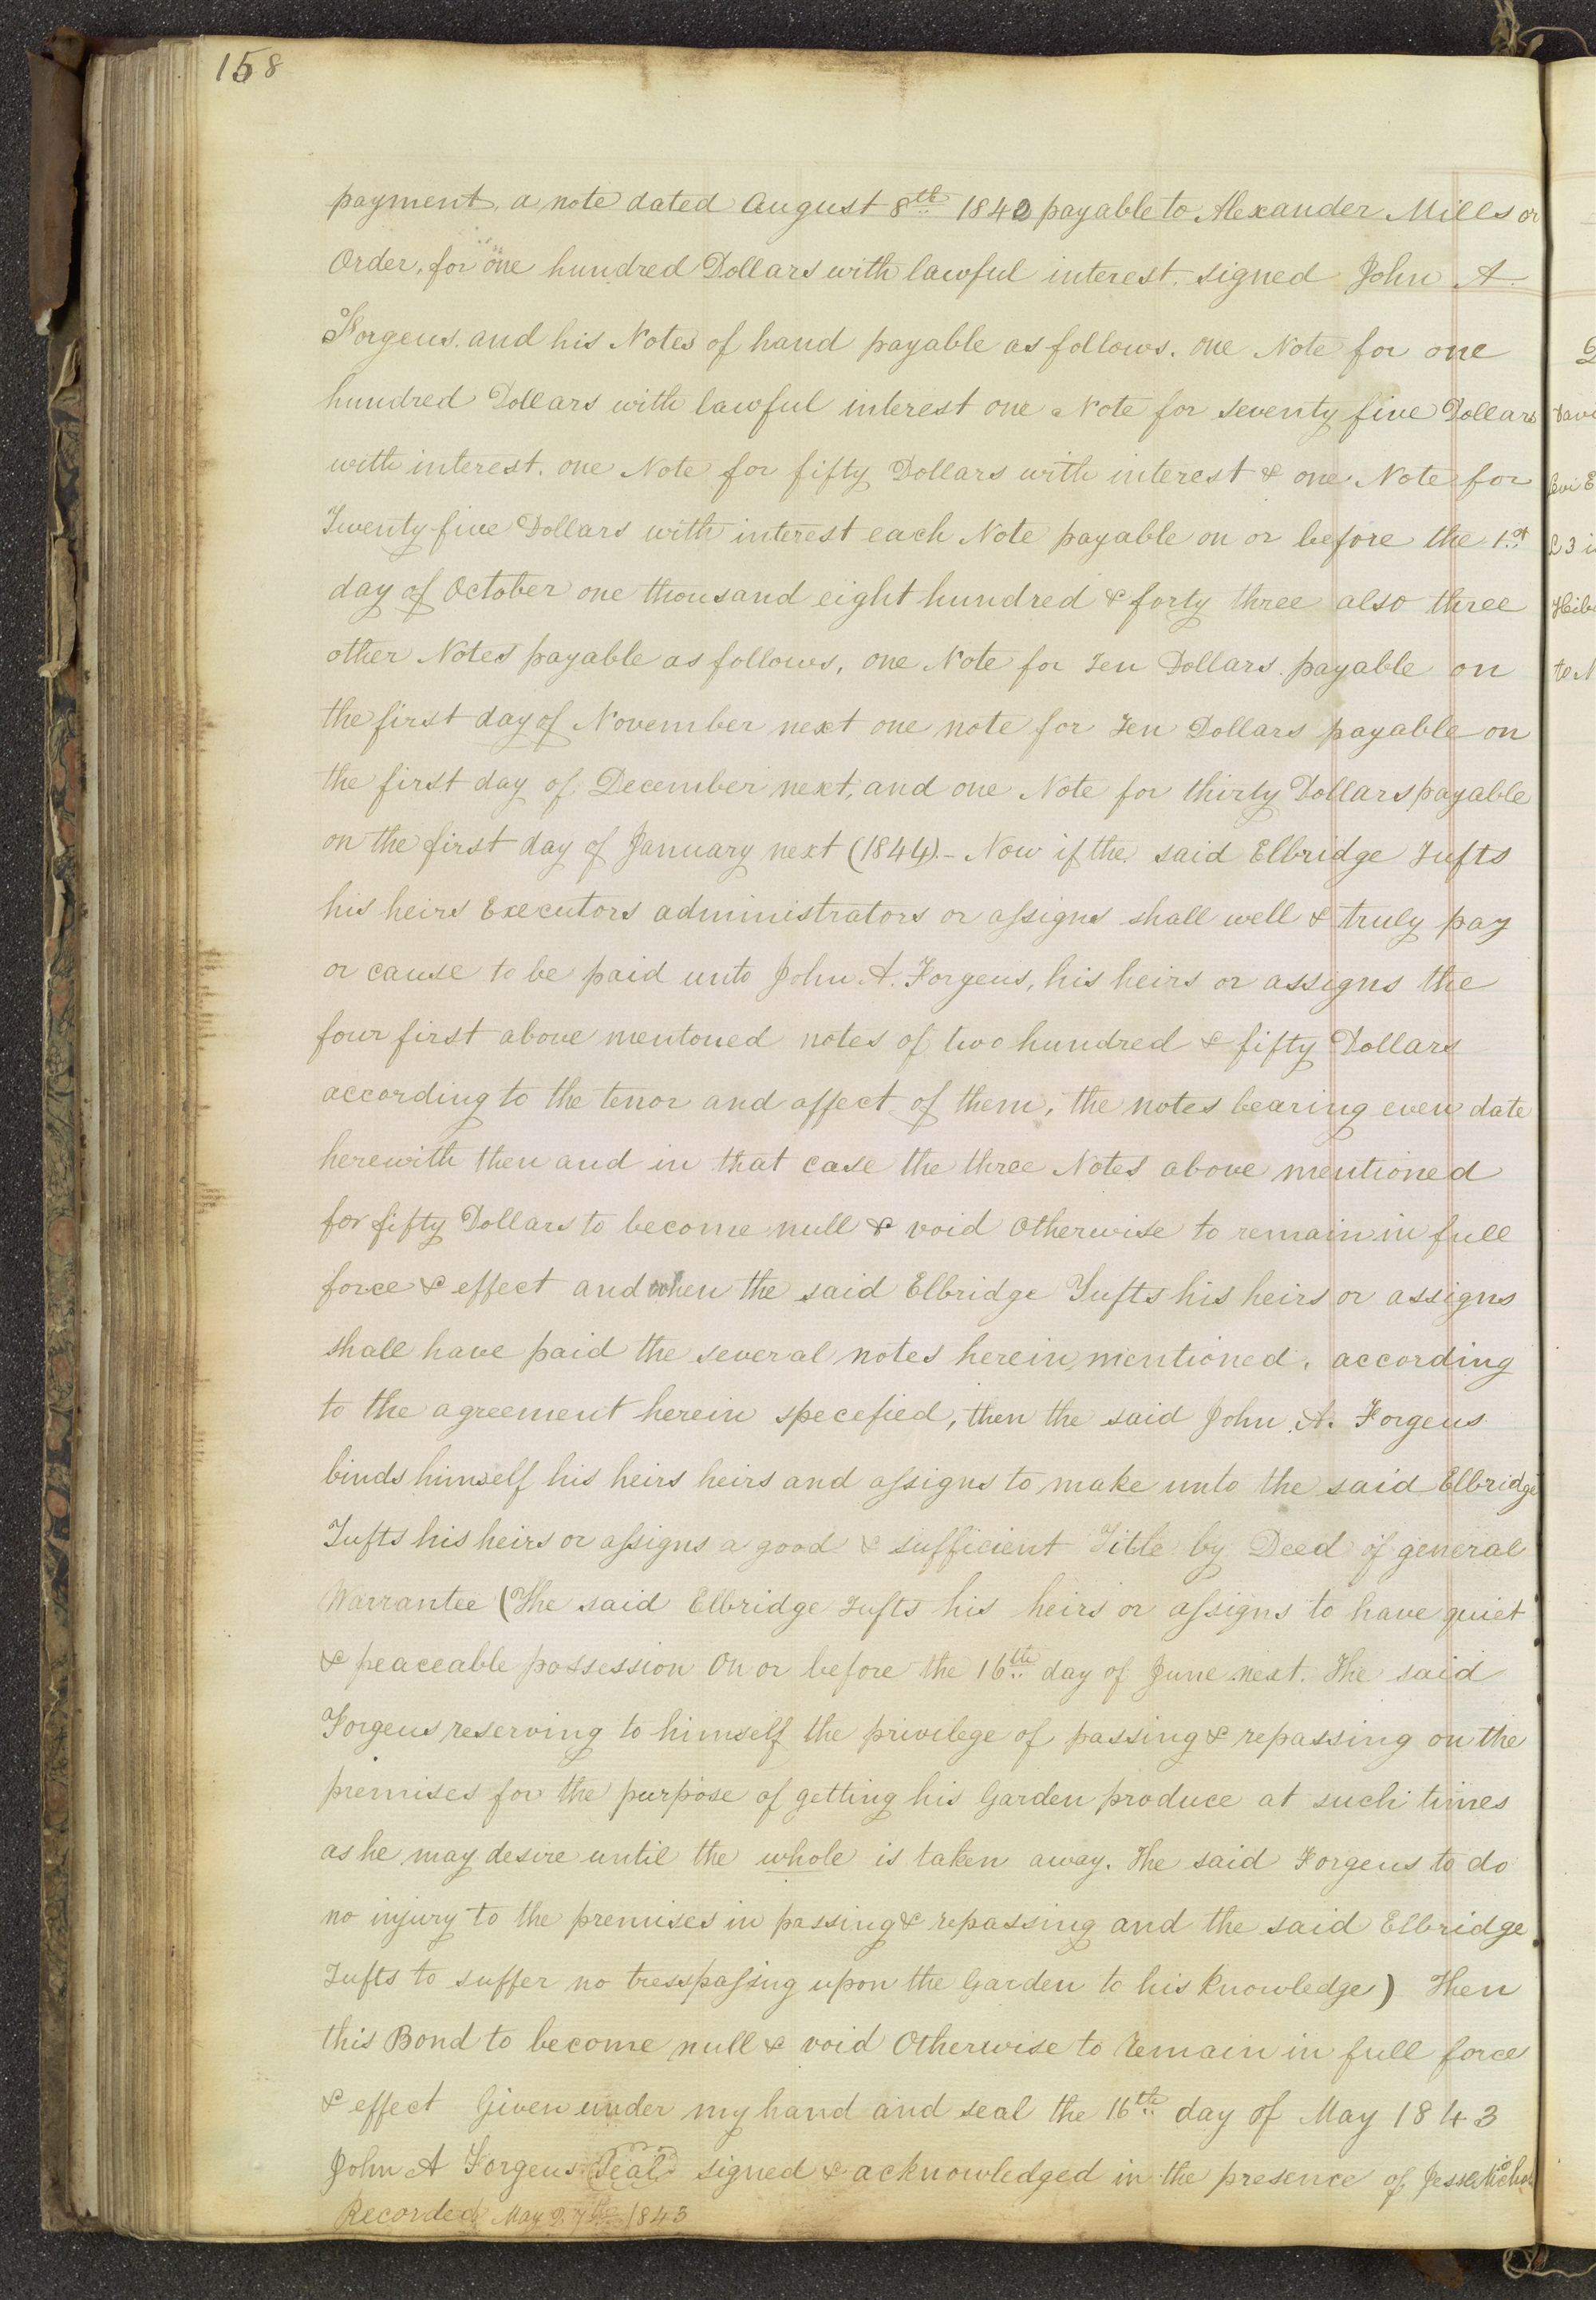 158
payment, a note dated August 8th 1840 payable to Alexander Mills or
Order, for one hundred Dollars with lawful interest. signed John A.
Forgeus. and his Notes of hand payable as follows. one Note for one
hundred Dollars with lawful interest one Note for seventy five Dollars
with interest. one Note for fifty Dollars with interest & one Note for
Twenty-five Dollars with interest each Note payable on or before the 1st
day of October one thousand eight hundred & forty three also three
other Notes payable as follows, one Note for Ten Dollars payable on
the first day of November next one note for Ten Dollars payable on
the first day of December next, and one Note for thirty Dollars payable
on the first day of January next (1844).- Now if the said Elbridge Tufts
his heirs Executors administrators or assigns shall well & truly pay
or cause to be paid unto John A. Forgeus, his heirs or assigns the
four first above mentoned notes of two hundred & fifty Dollars
according to the tenor and affect of them, the notes bearing even date
herewith then and in that case the three Notes above mentioned
for fifty Dollars to become null & void Otherwise to remain in full
force & effect and when the said Elbridge Tufts his heirs or assigns
shall have paid the several notes herein mentioned, according
to the agreement herein specefied, then the said John A. Forgeus
binds himself his heirs heirs and assigns to make unto the said Elbridge
Tufts his heirs or assigns a good & sufficient Title by Deed of general
Warrantee (The said Elbridge Tufts his heirs or assigns to have quiet
& peaceable possession On or before the 16th day of June next. The said
Forgeus reserving to himself the privilege of passing & repassing on the
premises for the purpose of getting his Garden produce at such times
as he may desire until the whole is taken away. The said Forgeus to do
no injury to the premises in passing & repassing and the said Elbridge
Tufts to suffer no tresspassing upon the Garden to his knowledge) Then
this Bond to become null & void Otherwise to remain in full force
& effect Given under my hand and seal the 16th day of May 1843
John A Forgeus Seal signed & acknowledged in the presence of Jesse
Recorded May 27th 1843